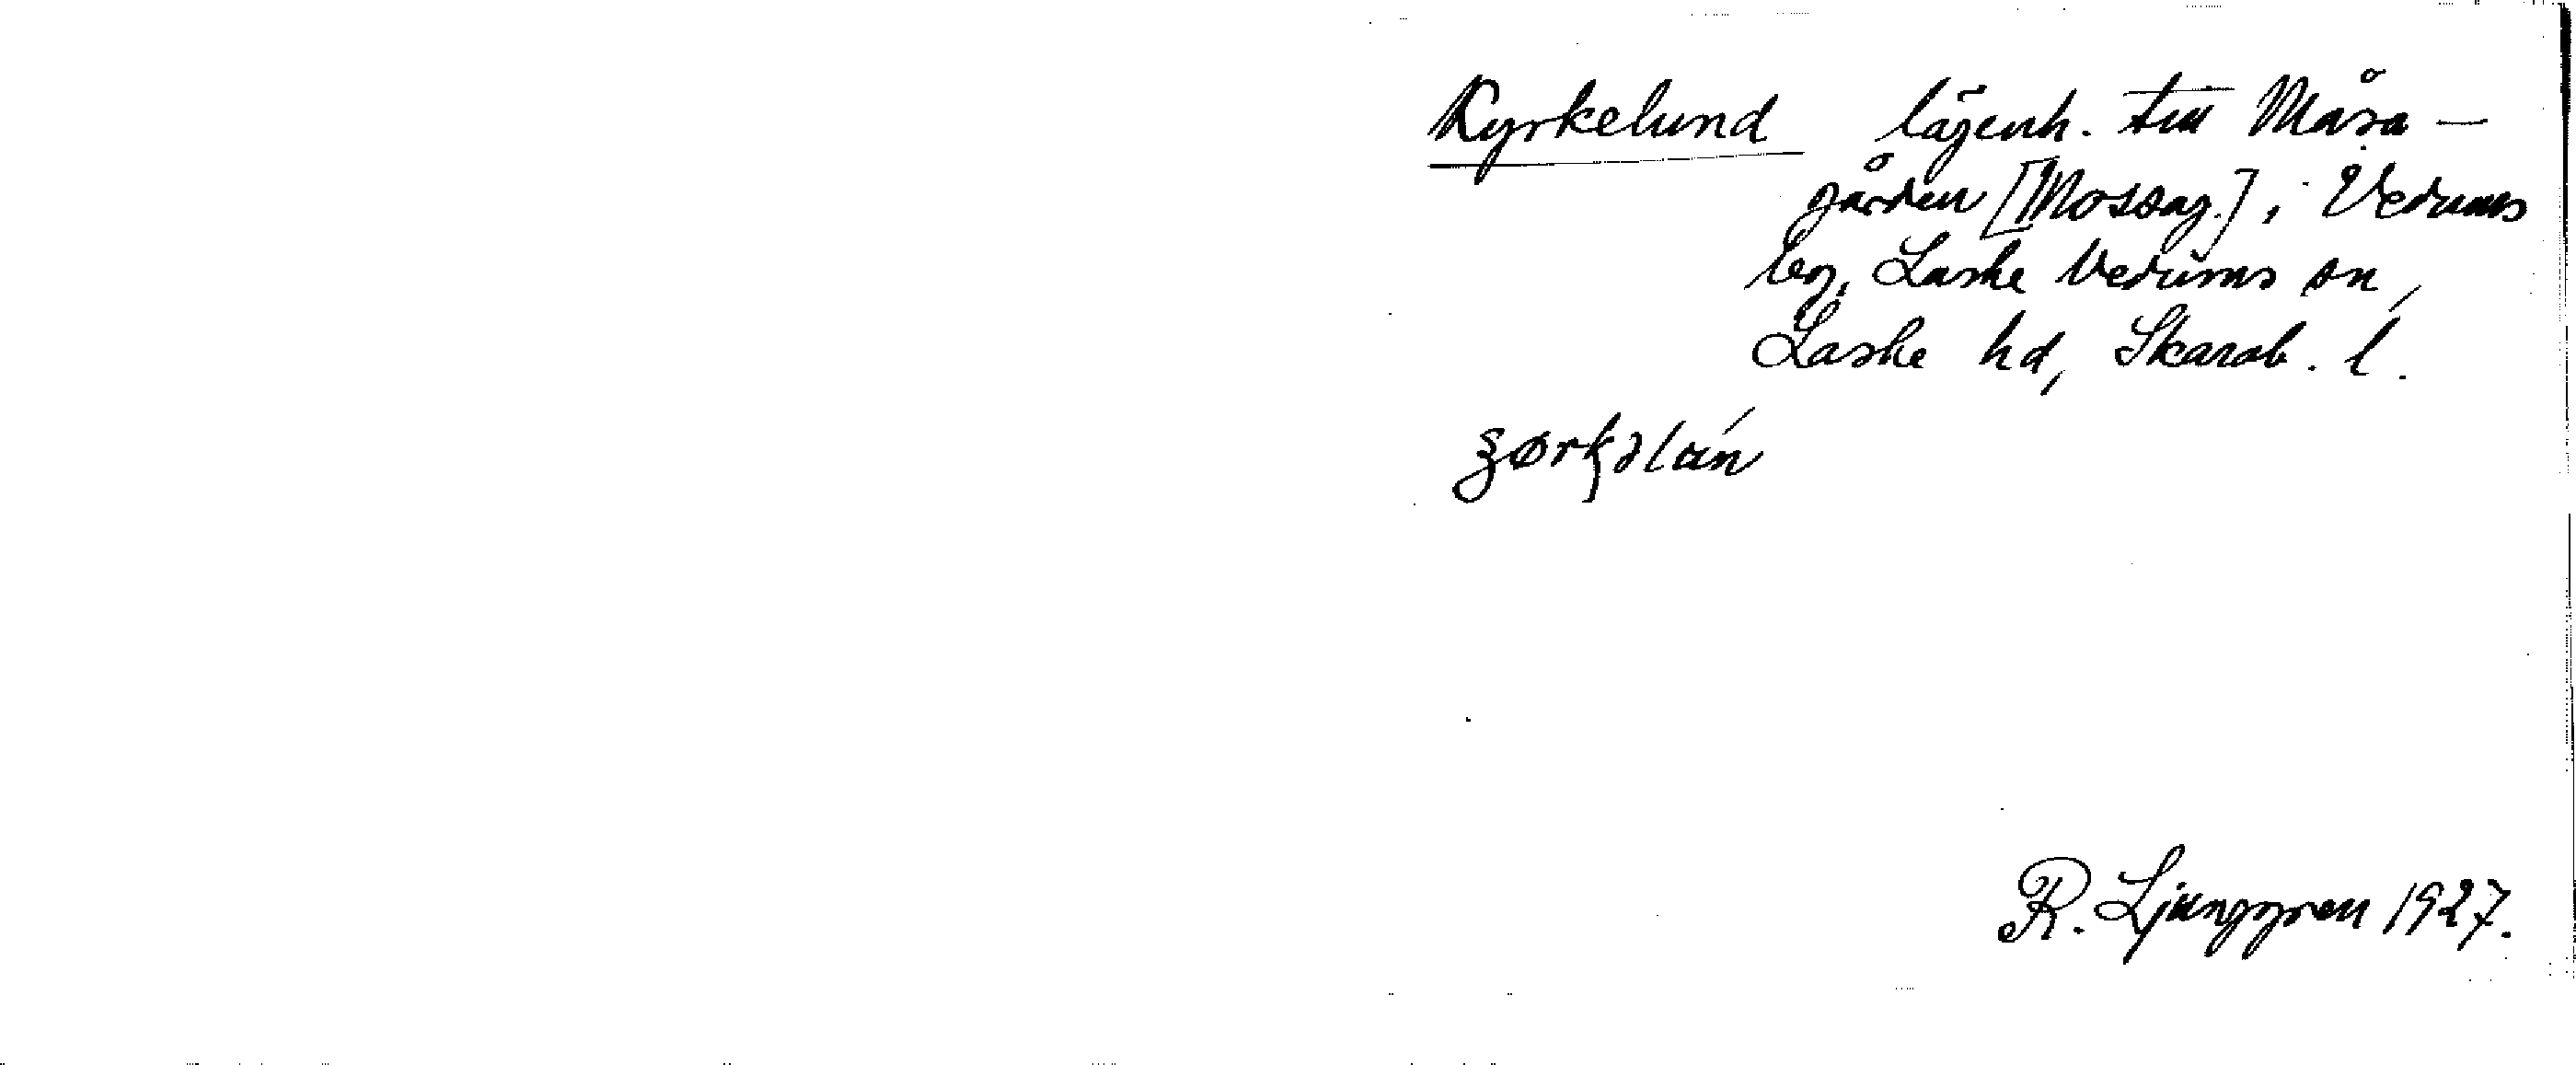 Kyrkelund lägenh. till Måsa-
gården [Mossag.], i Vedums
by, Laske Vedums sn,
Laske hd, Skarab. l.
R. Ljunggren 1927.